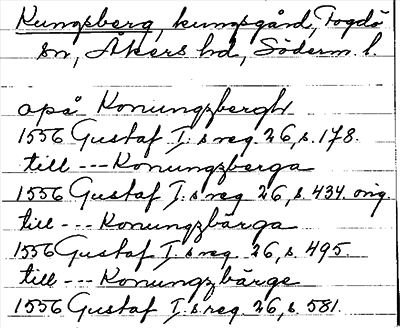 Kungsberg, kungsgård, Fogdö
sn, Åkers hd, Söderm. l.
opå Konungzbergh
1556 Gustaf I:s reg. 26, s. 178.
till --- Konungzberga
1556 Gustaf I:s reg. 26, s. 434. orig.
till --- Konungzbärga
1556 Gustaf I:s reg. 26, s. 495
till --- Konungzbärge
1556 Gustaf I:s reg. 26, s. 581.